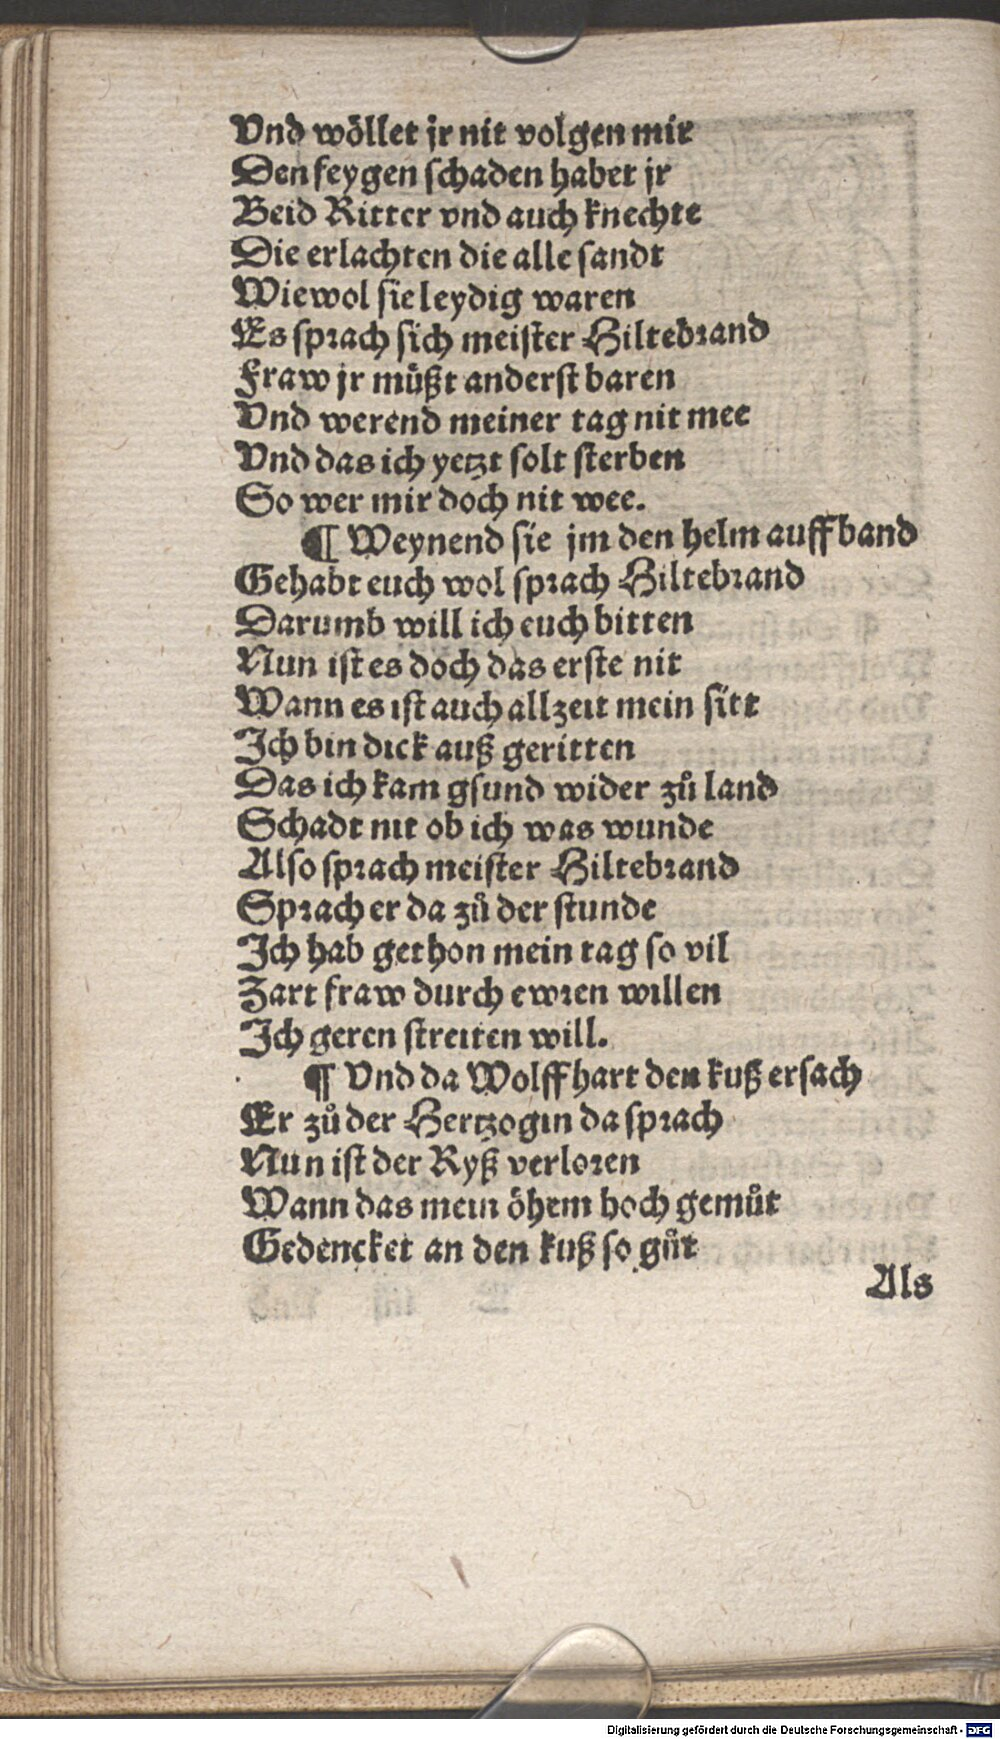 Vnd wöllet jr nit volgen mir
Den feygen schaden habet jr
Beid Ritter vnd auch knechte
Die erlachten die alle sandt
Wiewol sie leydig waren
Es sprach sich meister Hiltebrand
Fraw jr müßt anderst baren
Vnd werend meiner tag nit mee
Vnd das ich yetzt solt sterben
So wer mir doch nit wee.
¶ Weynend sie jm den helm auff band
Gehabt euch wol sprach Hiltebrand
Darumb will ich euch bitten
Nun ist es doch das erste nit
Wann es ist auch allzeit mein sitt
Ich bin dick auß geritten
Das ich kam gsund wider zů land
Schadt nit ob ich was wunde
Also sprach meister Hiltebrand
Sprach er da zů der stunde
Ich hab gethon mein tag so vil
Zart fraw durch ewren willen
Ich geren streiten will.
¶ Vnd da Wolffhart den kuß ersach
Er zů der Hertzogin da sprach
Nun ist der Ryß verloren
Wann das mein öhem hoch gemůt
Gedencket an den kuß so gůt
Als
Digitalisierung gefördert durch die Deutsche Forschungsgemeinschaft - DFG